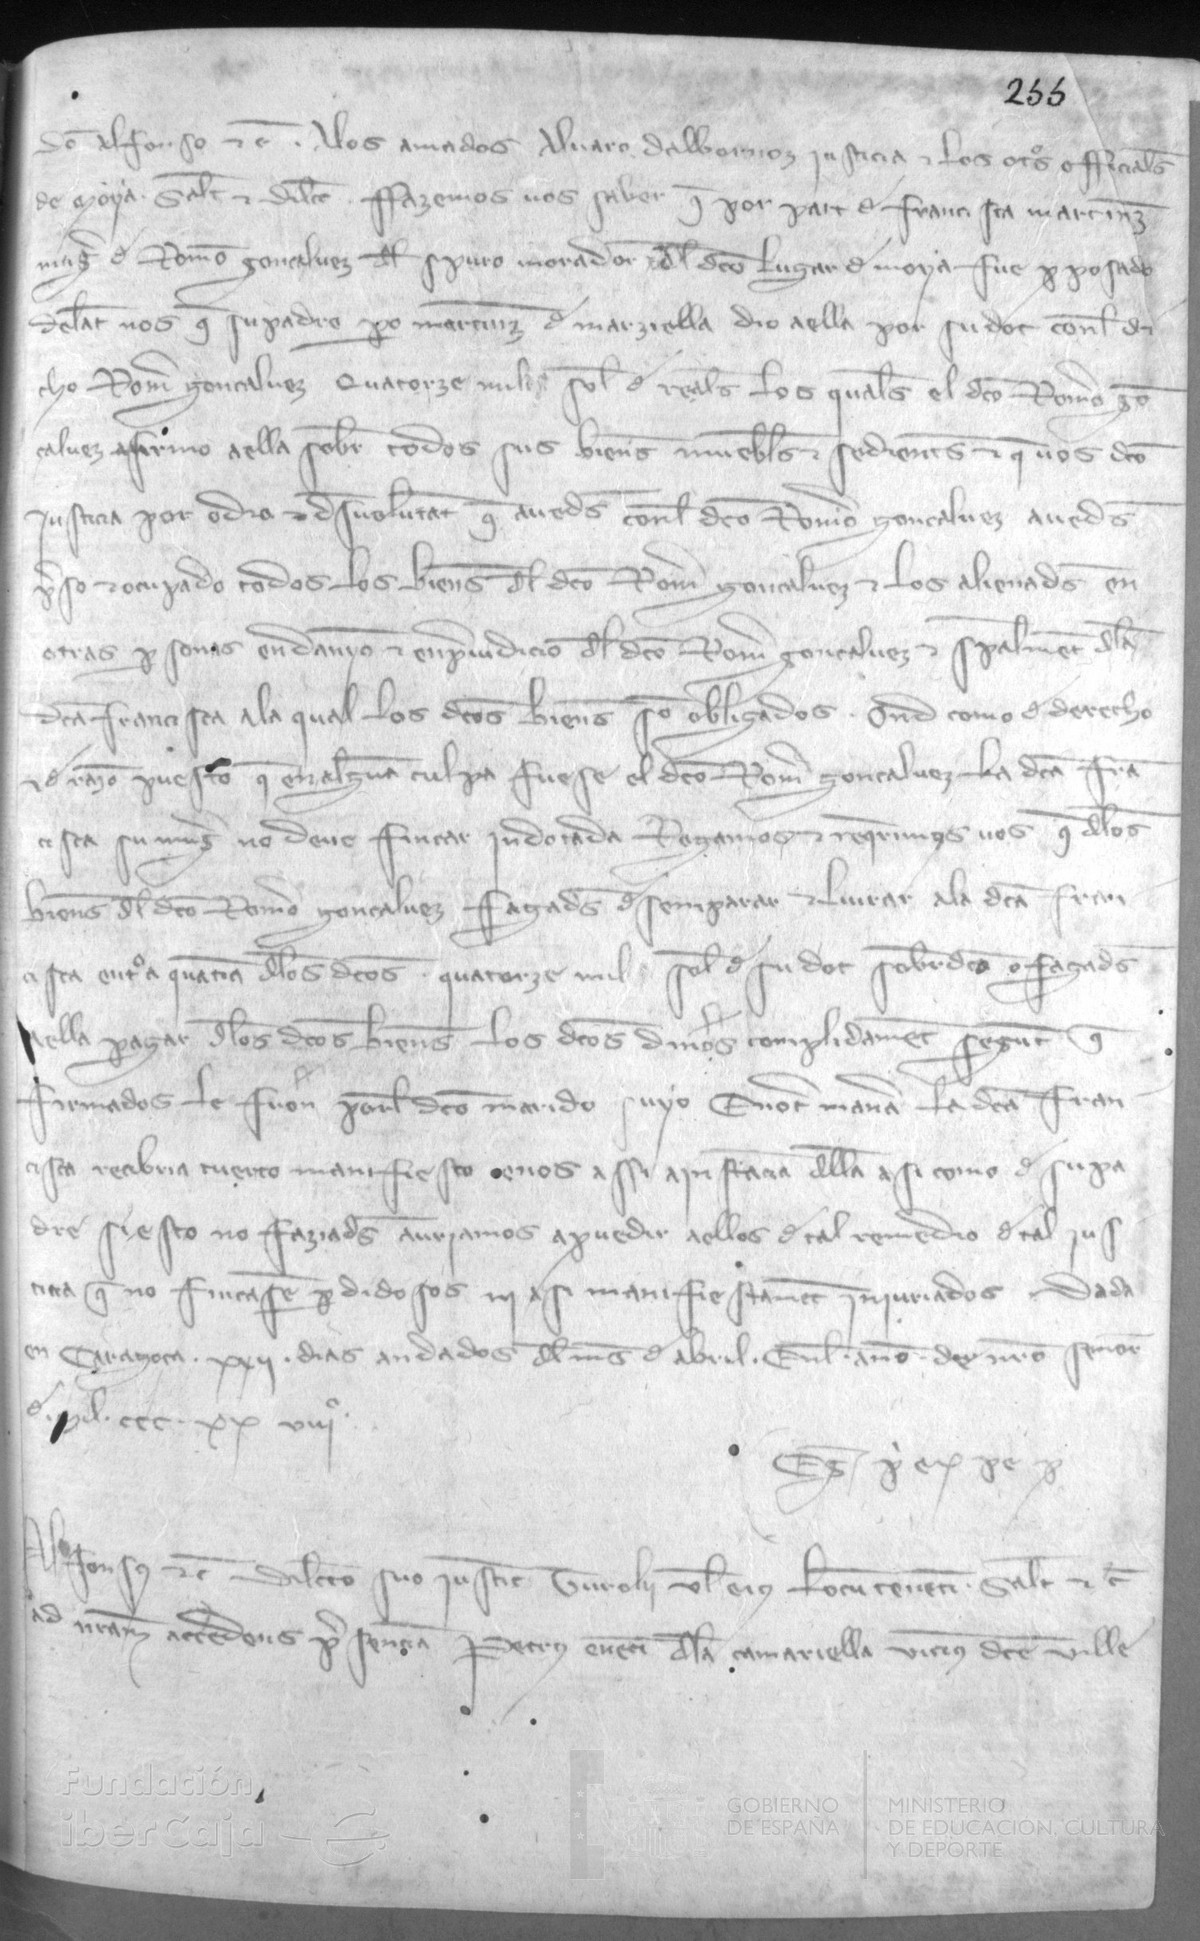 255
Don Alfonso etc. Alos amados Alvaro dalbornoz justicia e los otros officials
de Moya. Salt e dilec. Ffazemos vos saber que por part de Francisca martinz
mug de Romo goncaluez dl spuro morador dl dco lugar de moya fue pposado
delat nos que su padre po martinz de marziella dio aella por su dot conl di
cho Rom goncaluez Quatorze mil sol de reals los quals el dco Romo gon
caluez afirmo aella sobr todos sus biens muebls e sedients e que vos dco
justicia por odio e desvolutat que aveds conl dco Romo goncaluez aveds
pso e ocupado todos los biens dl dco Rom goncaluez e los alienads en
otras psonas en danyo e en piudicio dl dco Rom goncaluez e spalment dla
dca francisca ala qual los dcos biens son obligados. Ond como de derecho
e de razo puesto que en alguna culpa fuese el dco Rom goncaluez la dca fra
cisca su mug no deve fincar indotada Regamos e reqrimos vos que dlos
biens dl dco Romo goncaluez fagads desemparar e liurar ala dca fran
cisca entroa quatia dlos dcos quatorze mil sol de su dot sobrdco o fagads
aella pagar dlos dcos biens los dcos dinos complidament segunt que
firmados le fuon porl dco marido suyo En ot mana la dca fran
cisca recibria tuerto manifiesto e nos assi a instacia dlla asi como de su pa
dre si esto no faziads auriamos apuedir aellos de tal remedio de tal jus
ticia que no fincasen pdidosos ni asi manifiestament injuriados. Dada
en Caragoca. XXII. dias andados dl mes de abril. Enl anno de nro senor
de Mil. CCC. XX VIIIº.
Alfonsus etc Dilecto suo justic Turolii vl eius locutenenti. Salt etc
ad nram accedens psencia Petrus dla camariella vicinus dce ville
Fundación
iberCaja
GOBIERNO
DE ESPAÑA
MINISTERIO
DE EDUCACIÓN, CULTURA
Y DEPORTE